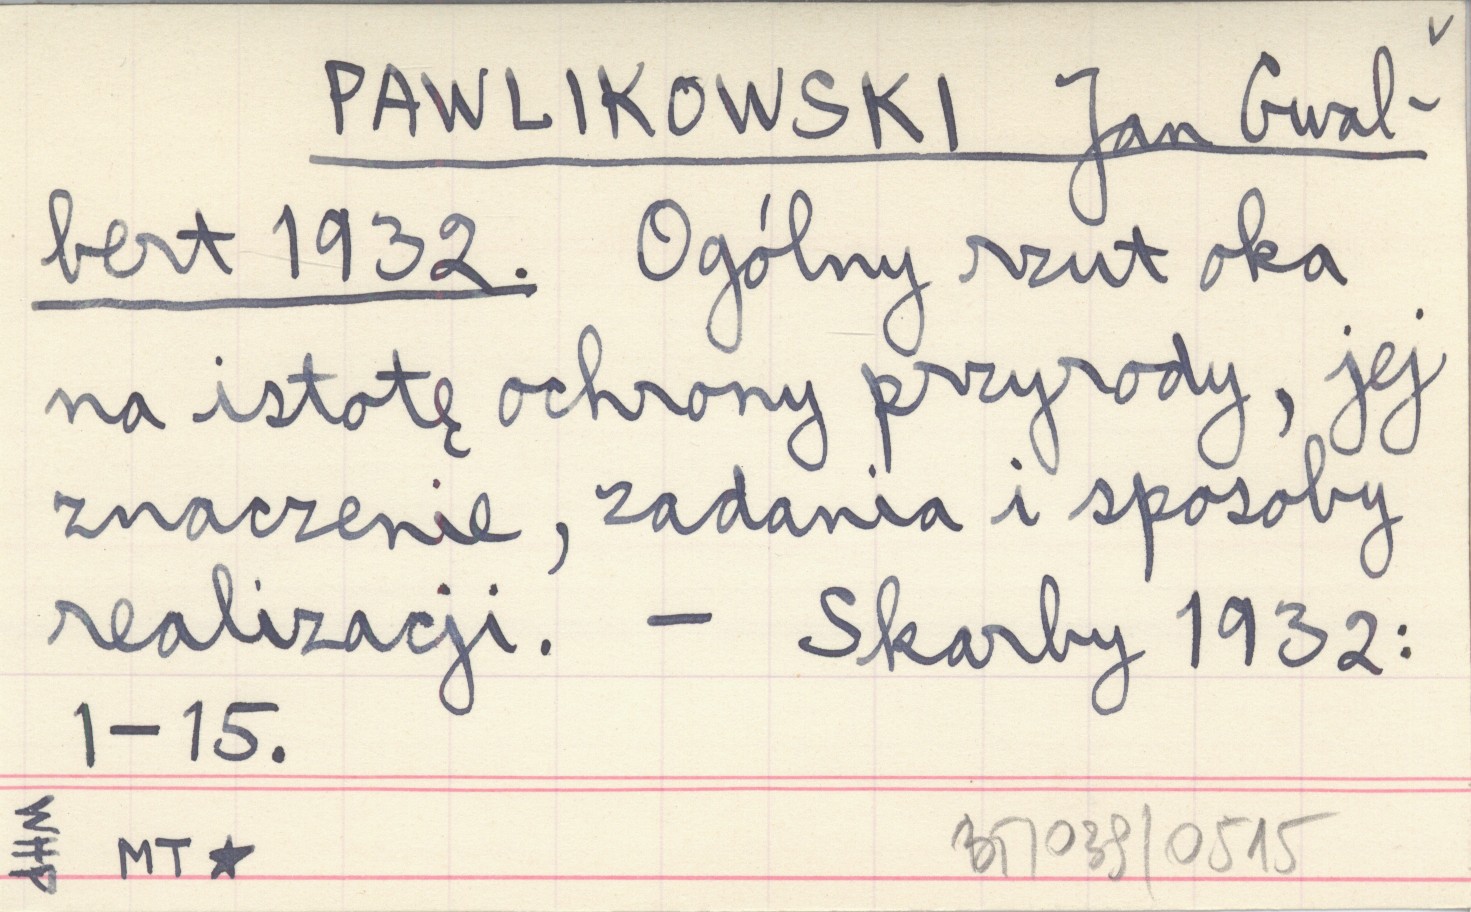 PAWLIKOWSKI Jan Gwal-
bert 1932. Ogólny rzut oka
na istotę ochrony przyrody, jej
znaczenie, zadania i sposoby
realizacji. — Skarby 1932:
1-15.
WHP
MT ★